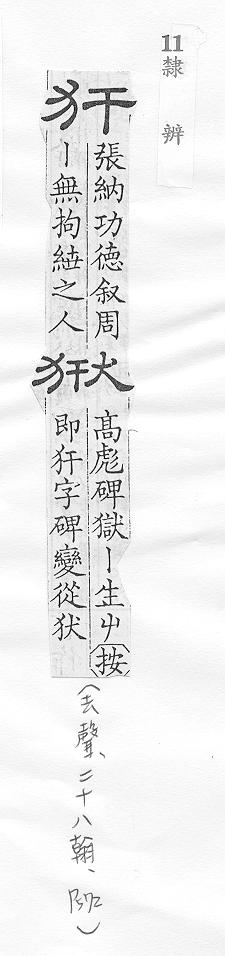 11
隸辨
犴
張納功徳叙周
丨無拘紲之人
髙彪碑獄丨生屮按
即犴字碑變從犾
(去聲、二十八翰、)